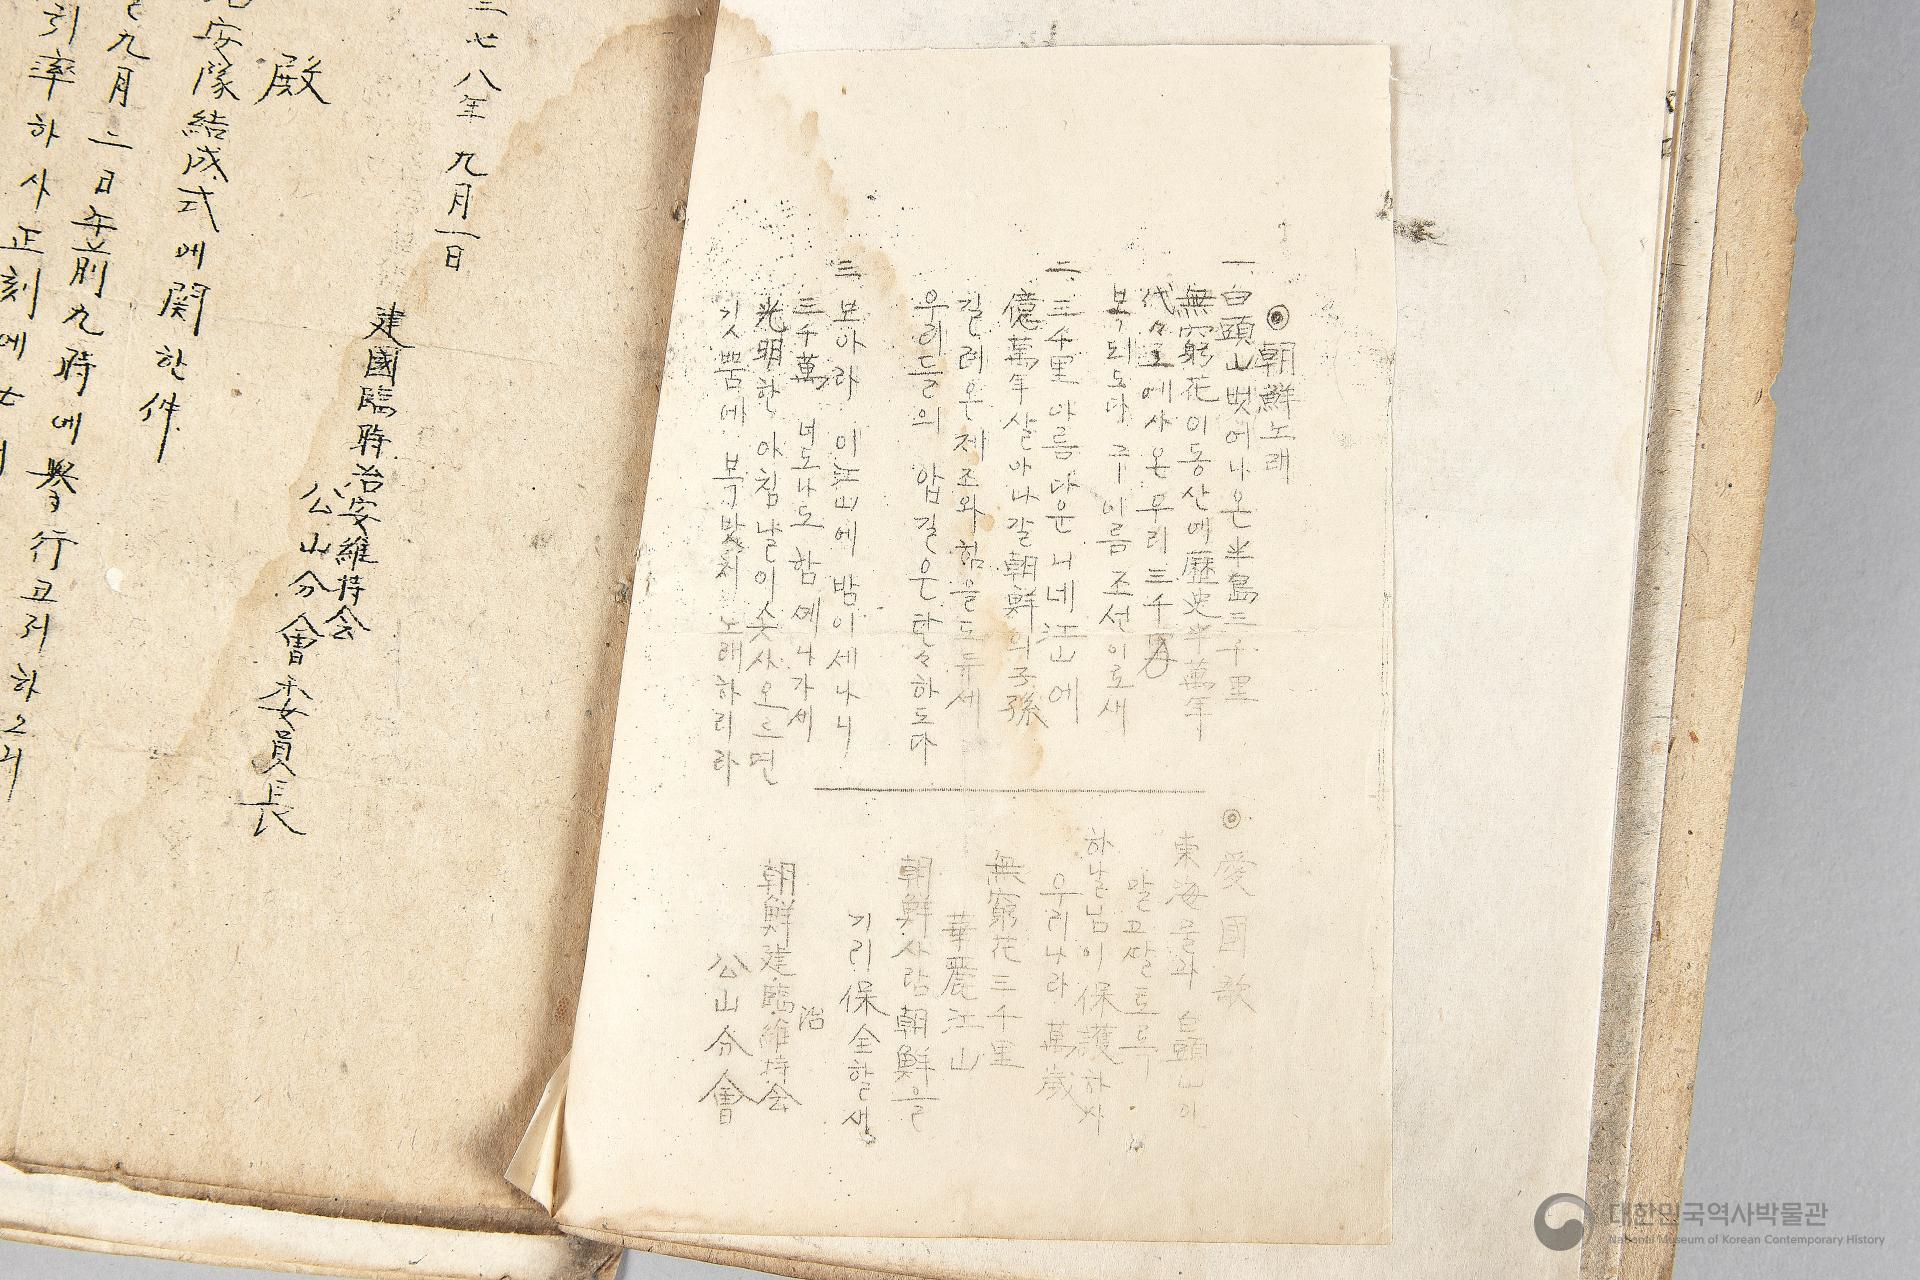 ◎朝鮮노래
一 白頭山뻣어나온半島三千里
無窮花이동산에歷史半萬年
代々로에사온우리三千万
복되도다 구이름조선이로새
二 三千里아름다운 니네江山에
億萬年살아나갈朝鮮의子孫
길러온재조와힘을도듀세
우리들의 압길은탄々하도다
三 보아라 이江山에밤이세나니
三千萬 너도나도함께나가세
光明한아침날이솟사오르면
깃뿜에 복밧처노래하리라
◎ 愛國歌
東海물과 白頭山이
말고달토록
하날님이保護하사
우리나라 萬歲
無窮花三千里
華麗江山
朝鮮사람朝鮮을
기리保全할새
治
朝鮮建臨維持会
公山分會
三七八年 九月一日
建國臨時治安維持会
公山分會委員長
殿
安隊結成式에関한件
九月二日午前九時에擧行코저하오니
引率하사正刻에
대한민국역사박물관
National Museum of Korean Contemporary History